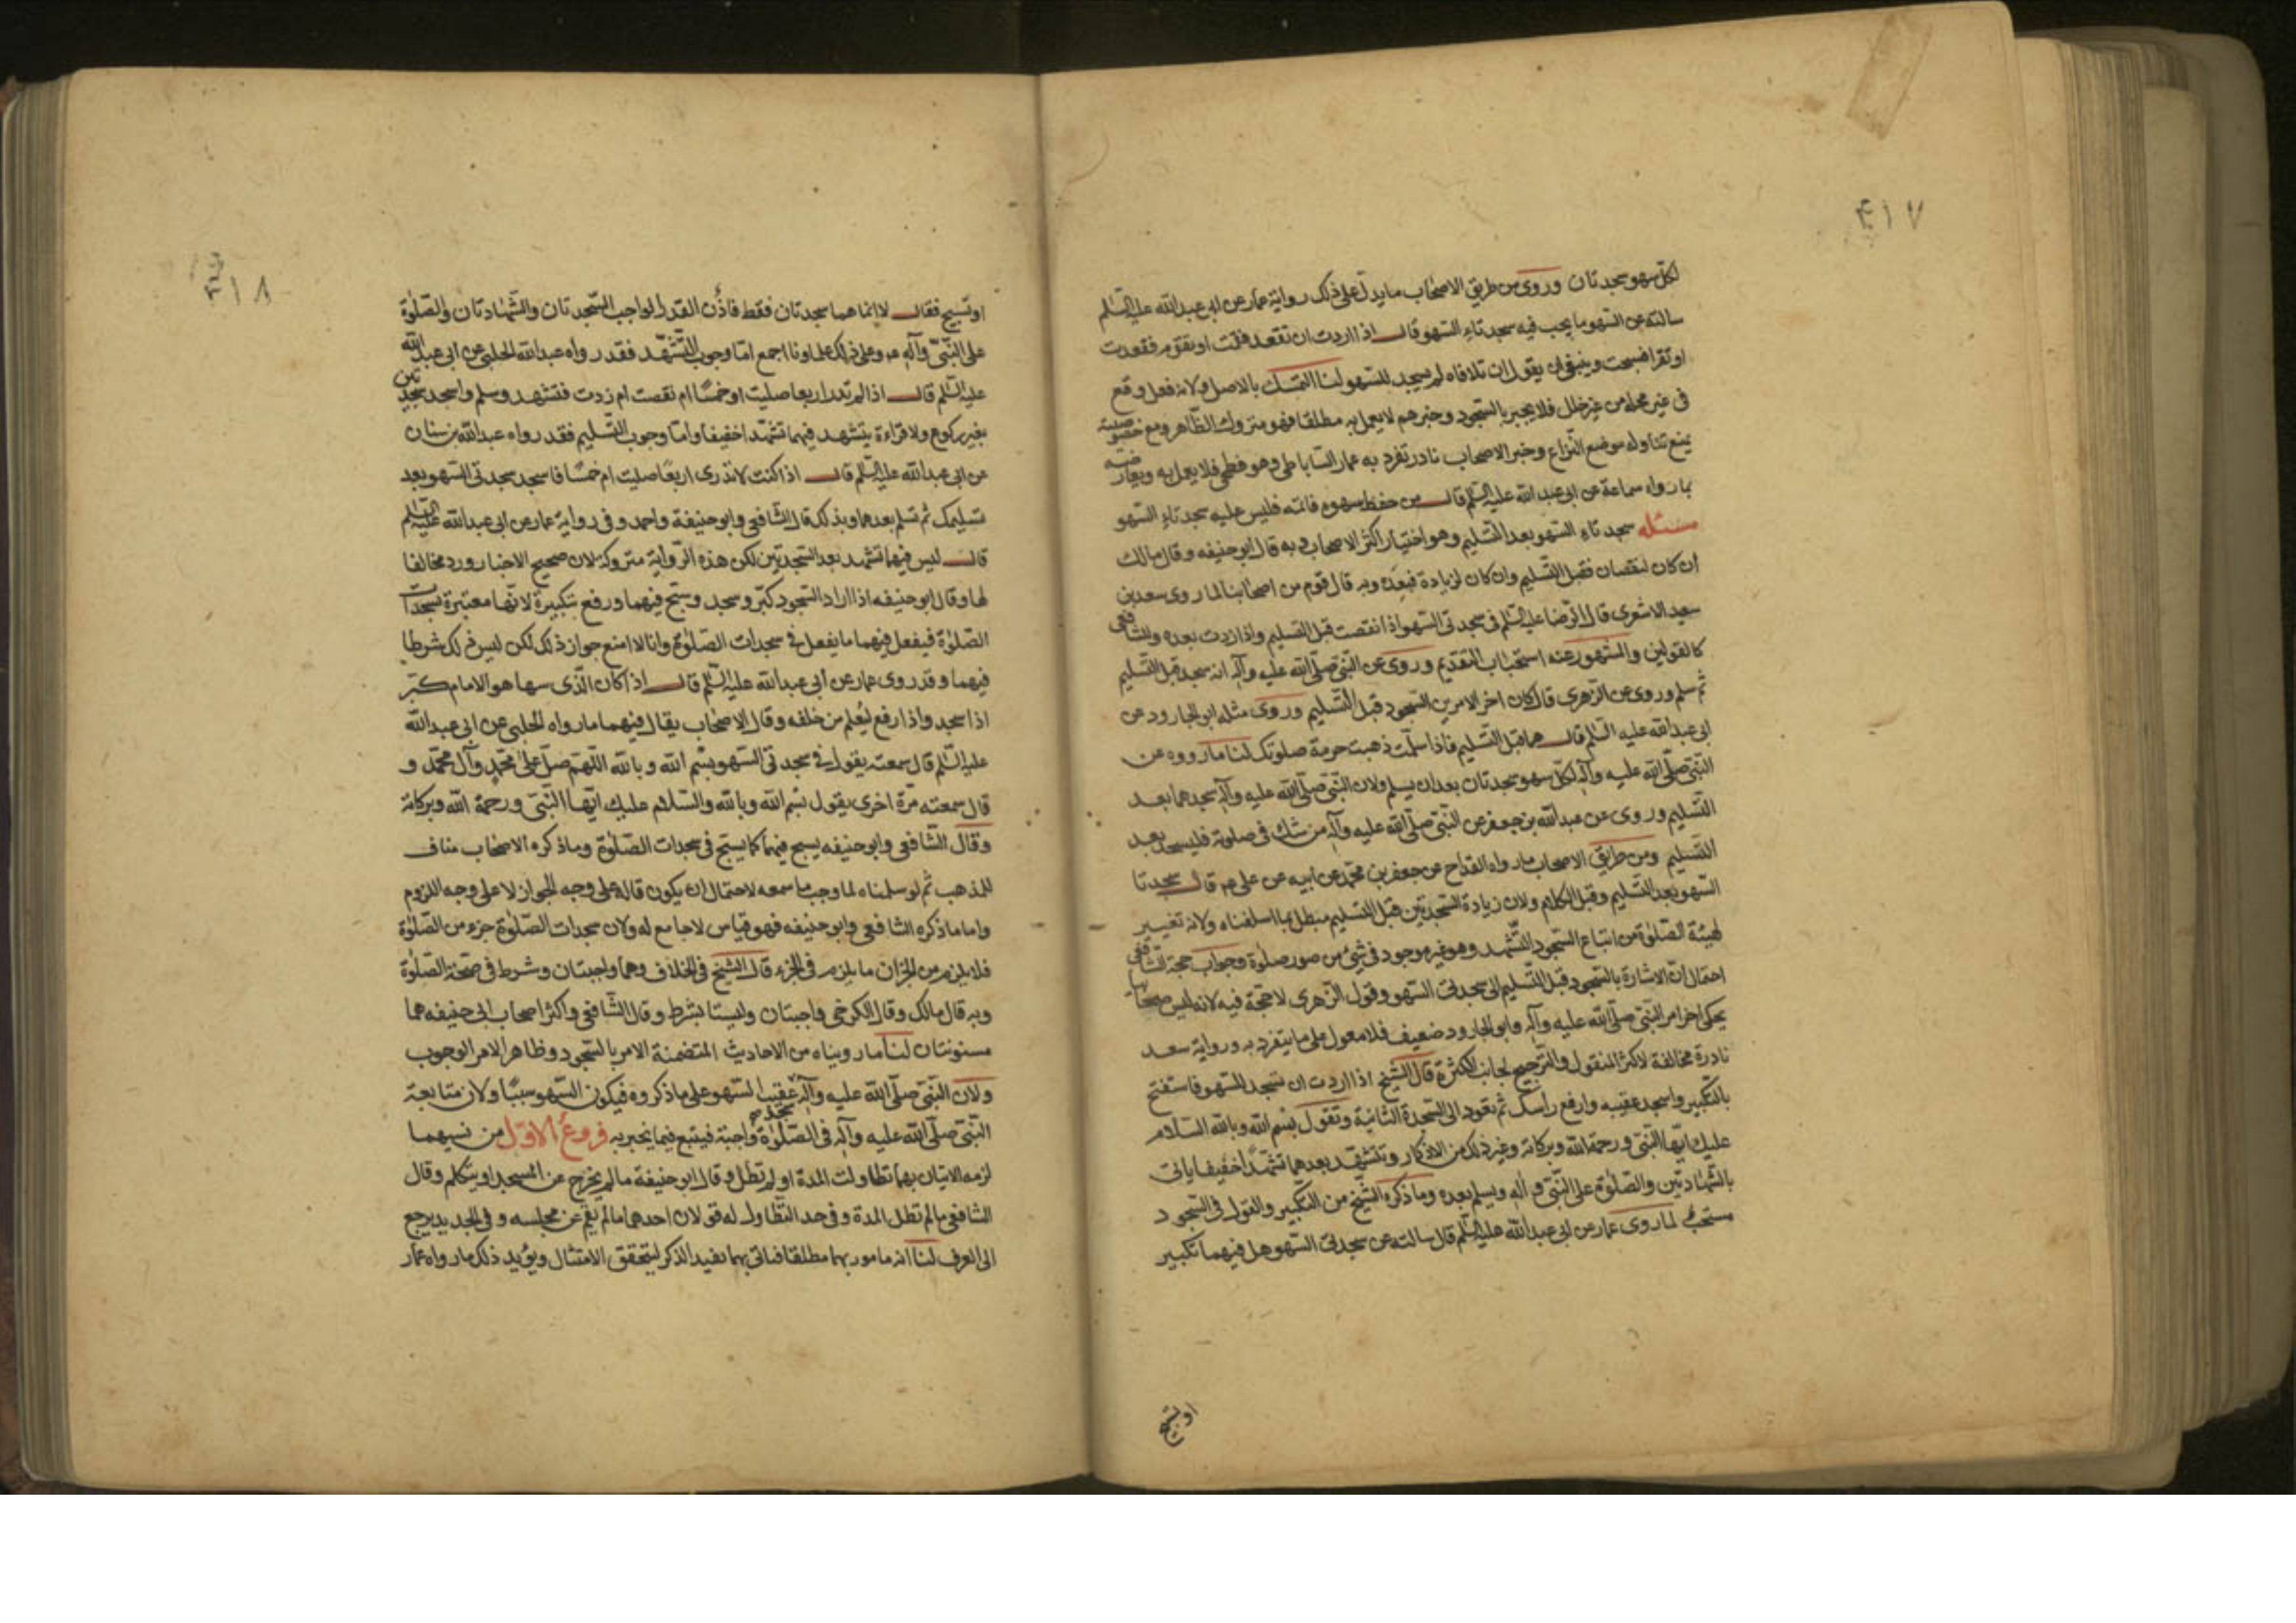 ٤١٧
لكل سهو سجدتان وروى من طريق الاصحاب ما يدل على ذلك رواية عمار عن ابى عبدالله عليه السلم
سالته عن السهو ما يجب فيه سجدتاء السهو قال اذا اردت ان تقعد فقمت او تقوم فقعدت
او تقرا فسبحت وينبغى ان يقول ان تلافاه لم يسجد للسهو لنا التمسك بالاصل ولانه فعل وقع
فى غير محله من غير خلل فلا يجبر بالسجود وخبرهم لا يعمل به مطلقا فهو متروك الظاهر ومع خصوصيته
يمنع تناوله موضع النزاع وخبر الاصحاب نادر تفرد به عمار الساباطى وهو فطحى فلا يعمل به ويعارضه
بما رواه سماعة عن ابى عبدالله عليه السلم قال من حفظ سهوه فاتمه فليس عليه سجدتاء السهو
مسئله سجدتاء السهو بعد التسليم وهو اختيار اكثر الاصحاب وبه قال ابو حنيفه وقال مالك
ان كان لنقصان فقبل التسليم وان كان لزيادة فبعده وبه قال قوم من اصحابنا لما روى سعد بن
سعيد الاشعرى قال الرضا عليه السلم فى سجدتى السهو اذا نقصت قبل التسليم واذا زدت بعده وللشافعى
كالقولين والمشهور عنه استحباب التقديم وروى عن النبى صلى الله عليه وآله انه سجد قبل التسليم
ثم سلم وروى عن الزهرى قال كان اخر الامرين السجود قبل التسليم وروى مثله ابو الجارود عن
ابى عبدالله عليه السلم قال هما قبل التسليم فاذا سلمت ذهبت حرمة صلوتك لنا ما رووه عن
النبى صلى الله عليه وآله لكل سهو سجدتان بعد ان يسلم ولان النبى صلى الله عليه وآله سجدهما بعد
التسليم وروى عن عبدالله بن جعفر عن النبى صلى الله عليه وآله من شك فى صلوته فليسجد بعد
التسليم ومن طريق الاصحاب ما رواه القداح عن جعفر بن محمد عن ابيه عن على ء م قال سجدتا
السهو بعد التسليم وقبل الكلام ولان زيادة السجدتين قبل التسليم مبطل بما اسلفناه ولانه تغيير
لهيئة الصلوة من اتباع السجود التشهد وهو غير موجود فى شئ من صور صلوة وجواب حجة الشافعى
احتمال ان الاشارة بالسجود قبل التسليم الى سجدتى السهو وقول الزهرى لا حجة فيه لانه ليس صحابيا
يحكى اخر امر النبى صلى الله عليه وآله وابو الجارود ضعيف فلا معول على ما يتفرد به ورواية سعد
نادرة مخالفة لاكثر المنقول والترجيح لجانب الكثرة قال الشيخ اذا اردت ان تسجد للسهو فاستفتح
بالتكبير واسجد عقيبه وارفع راسك ثم تعود الى السجدة الثانية وتقول بسم الله وبالله السلام
عليك ايها النبى ورحمة الله وبركاته وغير ذلك من الاذكار وتتشهد بعدهما تشهدا خفيفا ياتى
بالشهادتين والصلوة على النبى وآله ويسلم بعده وما ذكره الشيخ من التكبير والقول فى السجود
مستحب لما روى عمار عن ابى عبدالله عليه السلم قال سالته عن سجدتى السهو هل فيهما تكبير
او تسبيح
٤١٨
او تسبيح فقال لا انما هما سجدتان فقط فاذن القدر الواجب السجدتان والشهادتان والصلوة
على النبى وآله ء م وعلى ذلك علماونا اجمع اما وجوب التشهد فقد رواه عبدالله الحلبى عن ابى عبدالله
عليه السلم قال اذا لم تدر اربعا صليت او خمسا ام نقصت ام زدت فتشهد وسلم واسجد سجدتين
بغير ركوع ولا قراءة يتشهد فيهما تشهدا خفيفا واما وجوب التسليم فقد رواه عبدالله بن سنان
عن ابى عبدالله عليه السلم قال اذا كنت لا تدرى اربعا صليت ام خمسا فاسجد سجدتى السهو بعد
تسليمك ثم تسلم بعدهما وبذلك قال الشافعى وابو حنيفة واحمد وفى رواية عمار عن ابى عبدالله عليه السلم
قال ليس فيهما تشهد بعد السجدتين لكن هذه الرواية متروكة لان صحيح الاخبار ورد مخالفا
لها وقال ابو حنيفه اذا اراد السجود كبر وسجد وسبح فيهما ورفع بتكبيرة لانها معتبرة بسجدات
الصلوة فيفعل فيهما ما يفعل فى سجدات الصلوة وانا لا امنع جواز ذلك لكن ليس ذلك شرطا
فيهما وقد روى عمار عن ابى عبدالله عليه السلم قال اذا كان الذى سها هو الامام كبر
اذا سجد واذا رفع ليعلم من خلفه وقال الاصحاب يقال فيهما ما رواه الحلبى عن ابى عبدالله
عليه السلم قال سمعته يقول فى سجدتى السهو بسم الله وبالله اللهم صل على محمد وآل محمد و
قال سمعته مرة اخرى يقول بسم الله وبالله والسلام عليك ايها النبى ورحمة الله وبركاته
وقال الشافعى وابو حنيفه يسبح فيهما كما يسبح فى سجدات الصلوة وما ذكره الاصحاب مناف
للمذهب ثم لو سلمناه لما وجب ما سمعه لاحتمال ان يكون قاله على وجه الجواز لا على وجه اللزوم
واما ما ذكره الشافعى وابو حنيفه فهو قياس لا جامع له ولان سجدات الصلوة جزء من الصلوة
فلا يلزم من الجبران ما يلزم فى الجزء قال الشيخ فى الخلاف وهما واجبتان وشرط فى صحة الصلوة
وبه قال مالك وقال الكرخى واجبتان وليستا بشرط وقال الشافعى واكثر اصحاب ابى حنيفه هما
مسنونتان لنا ما رويناه من الاحاديث المتضمنة الامر بالسجود وظاهر الامر الوجوب
ولان النبى صلى الله عليه وآله سجد عقيب السهو على ما ذكروه فيكون السهو سببا ولان متابعة
النبى صلى الله عليه وآله فى الصلوة واجبة فيتبع فيما يجبر به فروع الاول من نسيهما
لزمه الاتيان بهما تطاولت المدة او لم تطل وقال ابو حنيفة ما لم يخرج من المسجد او يتكلم وقال
الشافعى ما لم تطل المدة وفى حد التطاول له قولان احدهما ما لم يقم عن مجلسه وفى الجديد يرجع
الى العرف لنا انه مامور بهما مطلقا فياتى بهما بعيد الذكر ليتحقق الامتثال ويؤيد ذلك ما رواه عمار